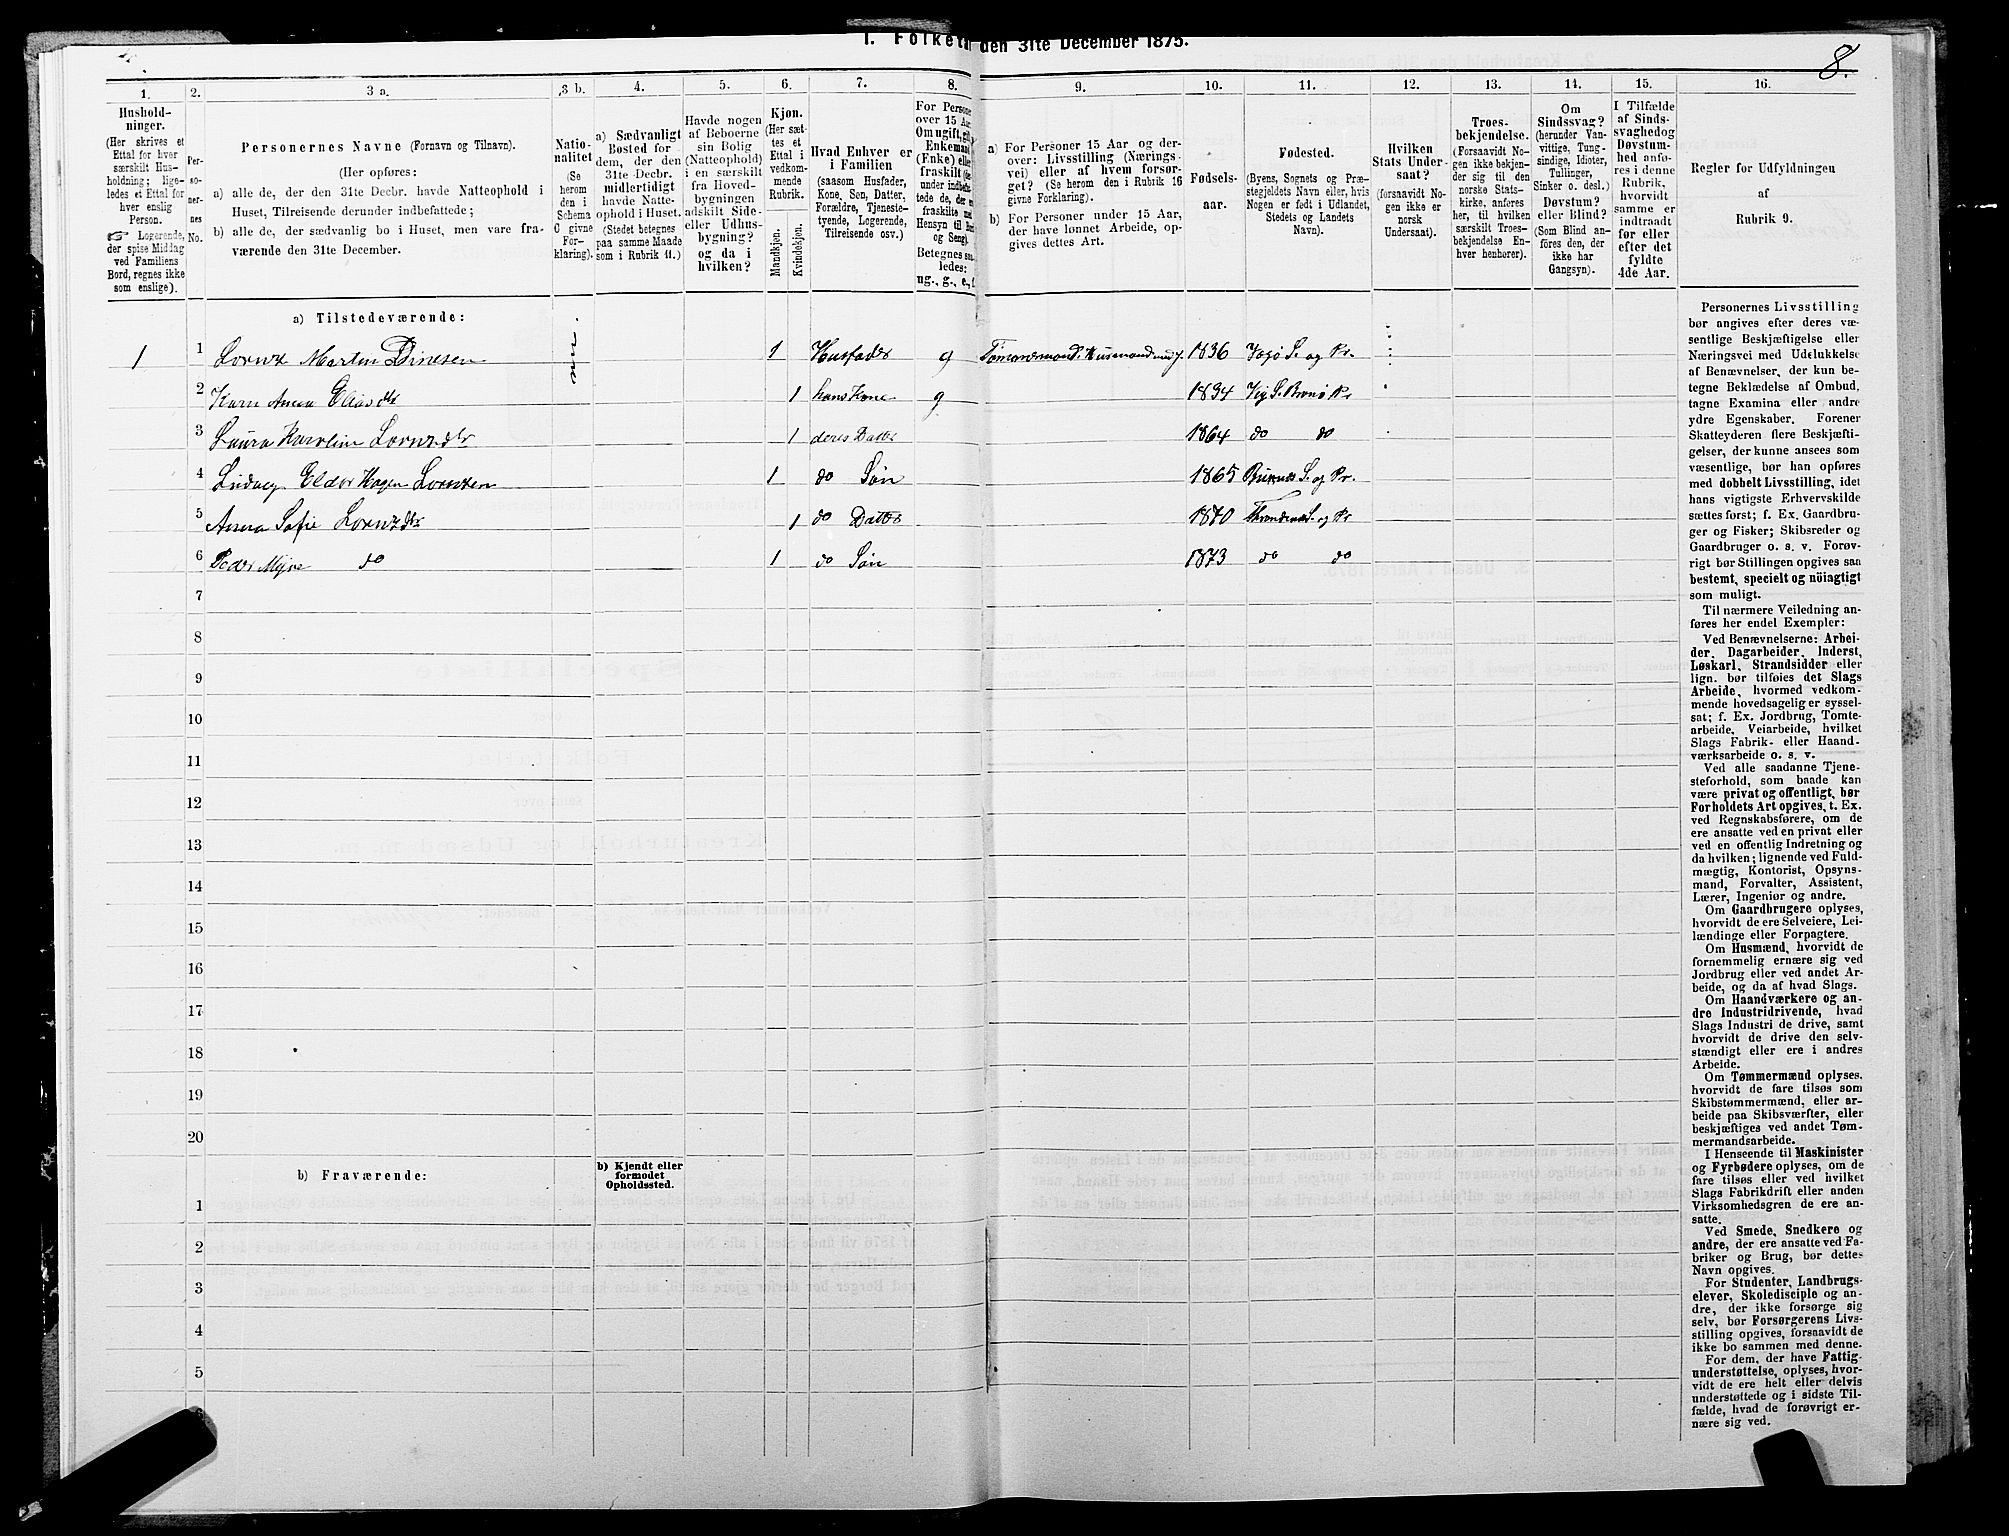 1. Folket den 31te December 1875.
8.
1.
2.
3 a.
3 b.
4.
5.
6.
7.
8.
9.
10.
11.
12.
13.
14.
15.
16.
Hushold-
ninger.
(Her skrives et
Ettal for hver
særskilt Hus-
holdning; lige-
ledes et Ettal for
hver enslig
Person.
☞ Logerende,
der spise Middag
ved Familiens
Bord, regnes ikke
som enslige).
Per-
so-
ner-
nes
No.
Personernes Navne (Fornavn og Tilnavn).
(Her opføres:
a) alle de, der den 31te Decbr. havde Natteophold i
Huset, Tilreisende derunder indbefattede;
b) alle de, der sædvanlig bo i Huset, men vare fra-
værende den 31te December.
Natio-
nalitet
(Se
herom
den i
Schema
C givne
For-
klaring).
a) Sædvanligt
Bosted for
dem, der den
31te Decbr.
midlertidigt
havde Natte-
ophold i Huset.
(Stedet betegnes
paa samme Maade
som i Rubrik 11.)
Havde nogen
af Beboerne
sin Bolig
(Natteophold)
i en særskilt
fra Hoved-
bygningen
adskilt Side-
eller Udhus-
bygning?
og da i
hvilken?
Kjøn.
(Her sæt-
tes et
Ettal i
vedkom-
mende
Rubrik.
Mandkjøn.
Kvindekjøn.
Hvad Enhver er
i Familien
(saasom Husfader,
Kone, Søn, Datter,
Forældre, Tjeneste-
tyende, Logerende,
Tilreisende osv.).
For Persone
over 15 Aar.
Om ugift, gift,
Enkemand
(Enke) eller
fraskilt
under indbefat-
tede de, der ere
fraskilte
Hensyn til Bord
og Seng).
Betegnes saa-
ledes:
ug., g., e., f.
a) For Personer 15 Aar og der-
over: Livsstilling (Nærings-
vei) eller af hvem forsør-
get? (Se herom den i Rubrik 16
givne Forklaring).
b) For Personer under 15 Aar,
der have lønnet Arbeide, op-
gives dettes Art.
Fødsels-
aar.
Fødested.
(Byens, Sognets og Præ-
stegjeldets Navn eller, hvis
Nogen er født i Udlandet,
Stedets og Landets
Navn).
Hvilken
Stats Under-
saat?
(forsaavidt No-
gen ikke er
norsk
Undersaat).
Troes-
bekjendelse.
(Forsaavidt No-
gen ikke bekjen-
der sig til den
norske Stats-
kirke, anføres
her, til hvilken
særskilt Troes-
bekjendelse En-
hver henhører).
Om
Sindssvag?
(herunder Van-
vittige, Tung-
sindige, Idioter,
Tullinger,
Sinker o. desl.)
Døvstum?
eller Blind?
(Som Blind an-
føres den, der
ikke har
Gangsyn).
I Tilfælde
af Sinds-
svaghed og
Døvstum-
hed anfø-
res i denne
Rubrik,
hvorvidt
samme er
indtraadt
før eller
efter det
fyldte
4de Aar.
Regler for Udfyldningen
af
Rubrik 9.
a) Tilstedeværende:
1 1 Lornz Martin Dinesen nn. 1 Husfader g Tømmermand. Husmand 1836 S. og Pr.
2 Karn Anna Eliasdtr 1 hans Kone g 1834 Vig S. Brønø Pr
3 Laura Karoline Lornzdtr 1 deres Datter 1864 do do
4 Ludvig Eldor Hagen Lorntzen 1 do Søn 1865 S. og Pr.
5 Anna Sofie Lornzdtr 1 do Datter 1870 Trondenæs S. og Pr
6 Peder do 1 do Søn 1873 do do
7
8
9
10
11
12
13
14
15
16
17
18
19
20
b) Fraværende:
b) Kjendt eller
formodet
Opholdssted.
1
2
3
4
5
Personernes Livsstilling
bør angives efter deres væ-
sentlige Beskjæftigelse eller
Næringsvei med Udelukkelse
af Benævnelser, der kun be-
tegne Beklædelse af Ombud,
tagne Examina eller andre
ydre Egenskaber. Forener
Skatteyderen flere Beskjæfti-
gelser, der kunne ansees som
væsentlige, bør han opføres
med dobbelt Livsstilling, idet
hans vigtigste Erhvervskilde
sættes først; f. Ex. Gaardbru-
ger og Fisker; Skibsreder og
Gaardbruger o. s. v. Forøv-
rigt bør Stillingen opgives saa
bestemt, specielt og nöiagtigt
som muligt.
Til nærmere Veiledning an-
føres her endel Exempler:
Ved Benævnelserne: Arbei-
der, Dagarbeider, Inderst,
Løskarl, Strandsidder eller
lign. bør tilføies det Slags
Arbeide, hvormed vedkom-
mende hovedsagelig er syssel-
sat; f. Ex. Jordbrug, Tomte-
arbeide, Veiarbeide, hvilket
Slags Fabrik- eller Haand-
værksarbeide o. s. v.
Ved alle saadanne Tjene-
steforhold, som baade kan
være privat og offentligt, bør
Forholdets Art opgives, t. Ex.
ved Regnskabsførere, om de
ere ansatte ved en privat eller
ved en offentlig Indretning og
da hvilken; lignende ved Fuld-
mægtig, Kontorist, Opsyns-
mand, Forvalter, Assistent,
Lærer, Ingeniør og andre.
Om Gaardbrugere oplyses,
hvorvidt de ere Selveiere, Lei-
lændinge eller Forpagtere.
Om Husmænd, hvorvidt de
fornemmelig ernære sig ved
Jordbrug eller ved andet Ar-
beide, og da af hvad Slags.
Om Haandværkere og an-
dre Industridrivende, hvad
Slags Industri de drive, samt
hvorvidt de drive den selv-
stændigt eller ere i andres
Arbeide.
Om Tømmermænd oplyses,
hvorvidt de fare tilsøs som
Skibstømmermænd, eller ar-
beide paa Skibsværfter, eller
beskjæftiges ved andet Tøm-
mermandsarbeide.
I Henseende til Maskinister
og Fyrbødere oplyses, om de
fare tilsøs eller ved hvilket
Slags Fabrikdrift eller anden
Virksomhedsgren de ere an-
satte.
Ved Smede, Snedkere og
andre, der ere ansatte ved Fa-
briker og Brug, bør dettes
Navn opgives.
For Studenter, Landbrugs-
elever, Skoledisciple og an-
dre, der ikke forsørge sig
selv, bør Forsørgerens Livs-
stilling opgives, forsaavidt de
ikke bo sammen med denne.
For dem, der have Fattig-
understøttelse, oplyses, hvor-
vidt de ere helt eller delvis
understøttede og i sidste Til-
fælde, hvad de forøvrigt er-
nære sig ved.